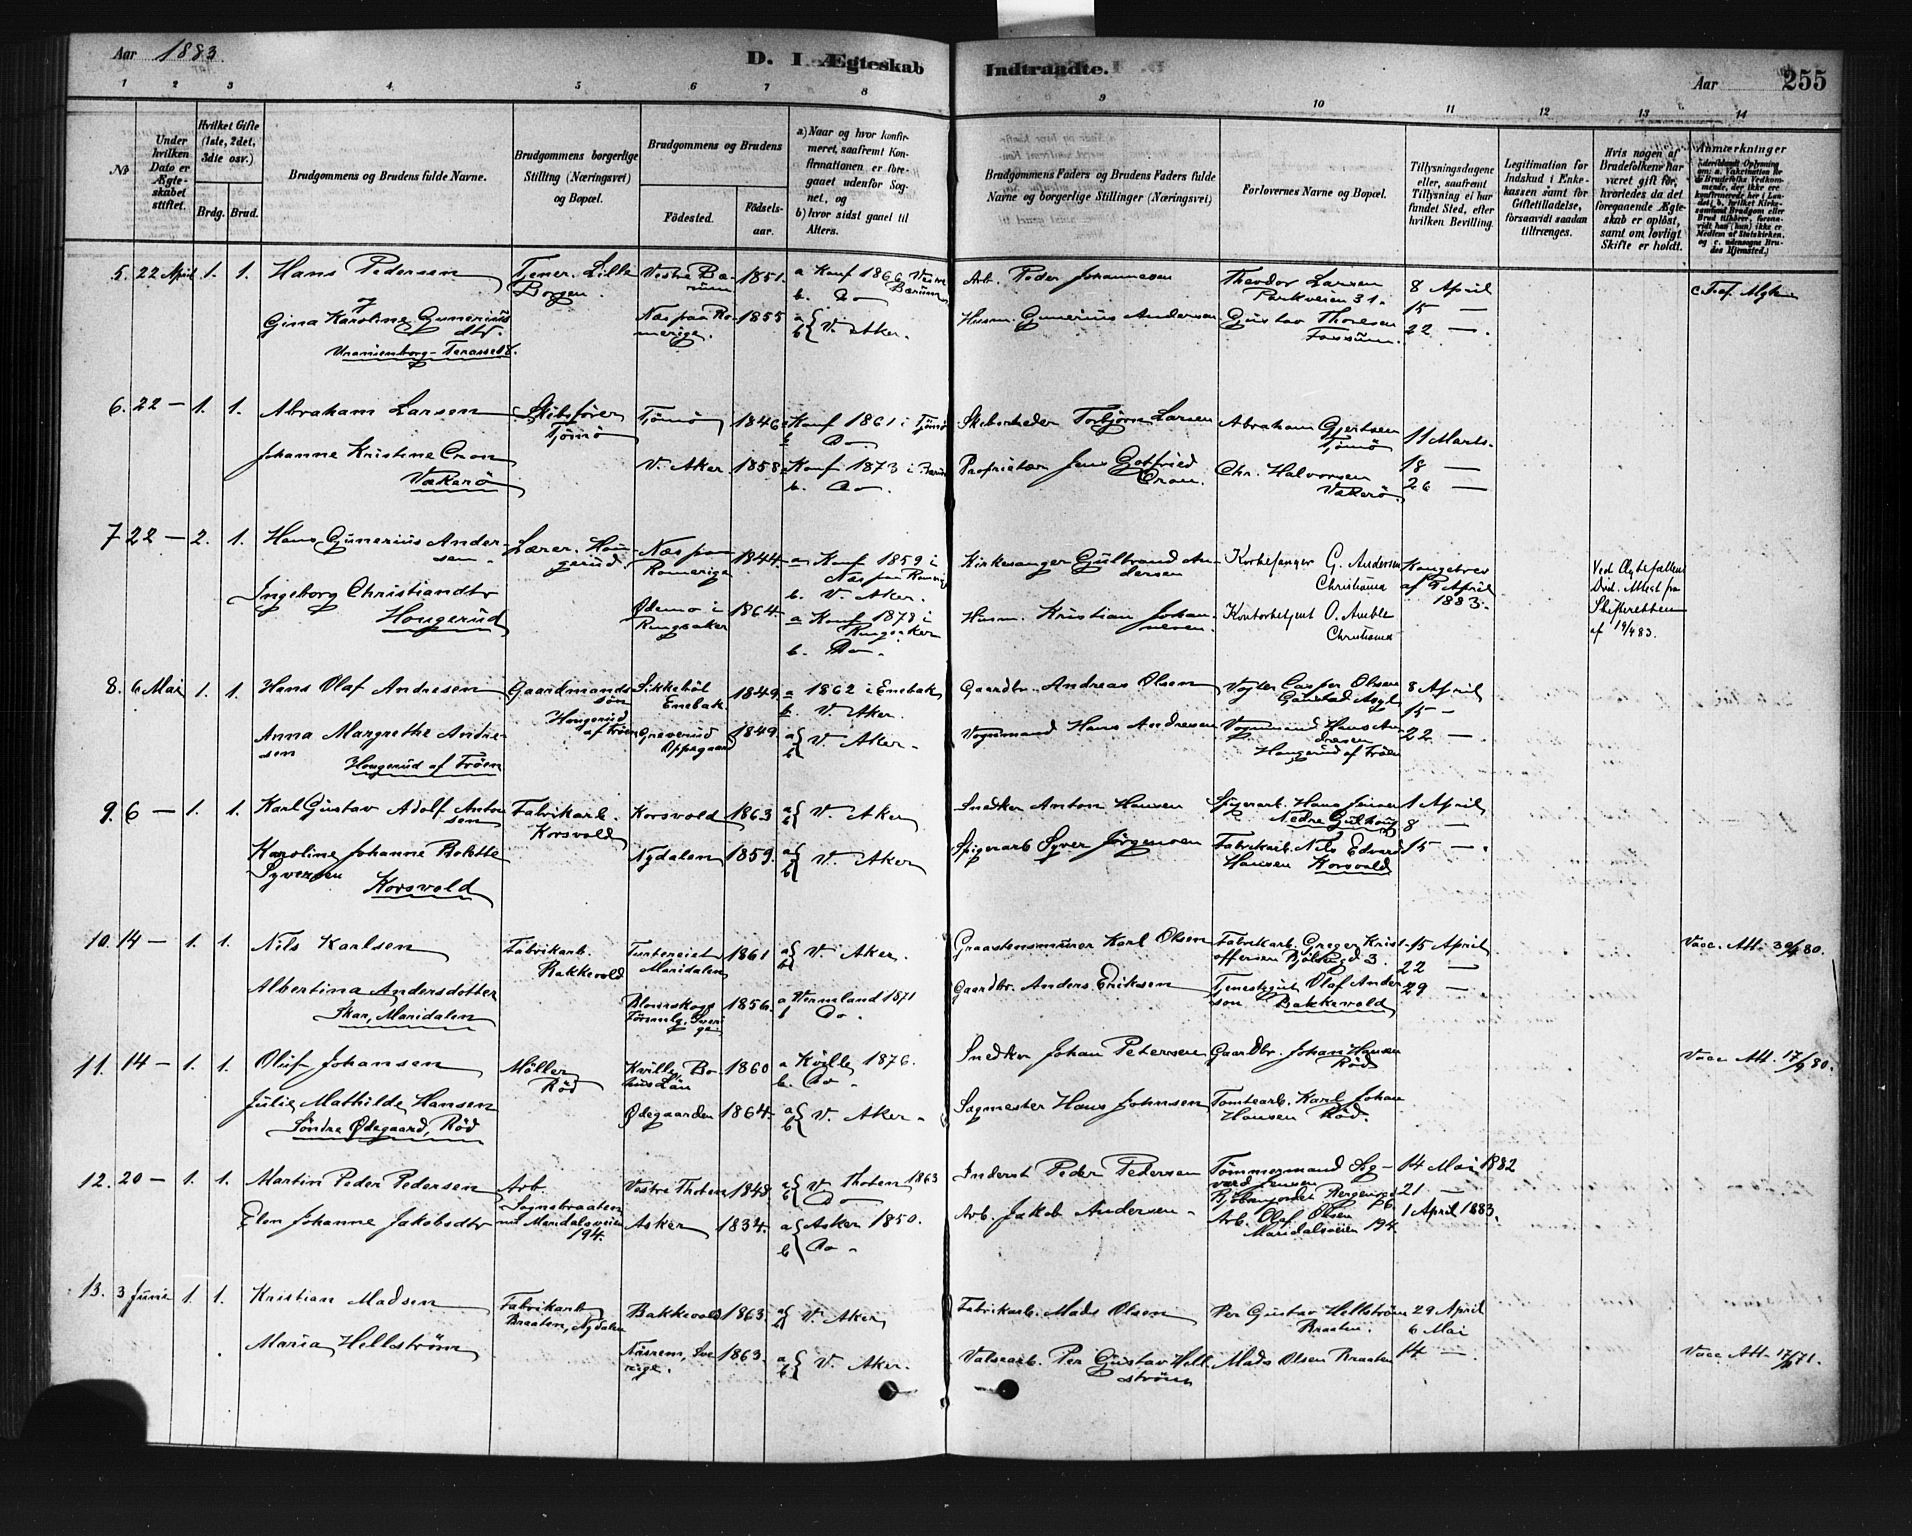 Aar 1883.
D. I. Ægteskab Indtraadte.
Aar 255
1 2 3 4 5 6 7 8 9 10 11 12 13 14
No
Under hvilken Dato er Ægteskabet stiftet.
Hvilket Gifte (1ste, 2det, 3die osv.)
Brdg. Brud.
Brudgommens og Brudens fulde Navne.
Brudgommens borgerlige Stilling (Næringsvei) og Bopæl.
Brudgommens og Brudens
Fødested. Fødselsaar.
a) Naar og hvor konfirmeret, saafremt Konfirmationen er foregaaet udenfor Sognet, og
b) hvor sidst gaaet til Alters.
Brudgommens Faders og Brudens Faders fulde Navne og borgerlige Stillinger (Næringsvei)
Forlovernes Navne og Bopæl.
Tillysningsdagene eller, saafremt Tillysning ei har fundet Sted, efter hvilken Bevilling.
Legitimation for Indskud i Enkekassen samt for Giftetilladelse, forsaavidt saadan tiltrænges.
Hvis nogen af Brudefolkene har været gift før, hvorledes da det foregaaende Ægteskab er opløst, samt om lovligt Skifte er holdt.
Anmærkninger
5. 22 April 1. 1. Hans Pedersen Tjener. Lille Borgen. Vestre Bærum 1851. a Konf 1866 Vestre Bærum b. Do Arb. Peder Johannesen Theodor Larsen Parkveien 31. 8 April
Gina Karoline Guneriusdtr. Uranienborg-Terasse 18. Næs paa Romerige. 1855 a b V. Aker. Husm. Gunerius Andersen Gustav Thoresen Fossum. 15 — 22 —.
6. 22 — 1. 1. Abraham Larsen Skibsfører Tjømø Tjømø 1846 a Konf 1861 i Tjømø b Do Skibsrheder Torbjørn Larsen Abraham Gjertsen Tjømø 11 Marts.
Johanne Kristine Cron Vækerø V. Aker 1858 a Konf 1873 i b. Do. Proprietær Jens Gotfried Cron. Chr. Halvorsen Vækerø. 18 — 26 —
7 22 — 2. 1. Hans Gunerius Andersen. Lærer. Hougerud. Næs paa Romerige 1844 a Konf 1859 i Næs paa Romerig b. V. Aker. Kirkesanger Gulbrand Andersen Kirkesanger G. Andersen Christiania Kongebrev af April 1883.
Ved Ægtefællens Død. Attest fra Skifteretten af 18/4 83.
Ingeborg Christiandtr Hougerud Ødemo i Ringsaker 1864. a Konf 1878 i Ringsaker b. Do. Husm. Kristian Johannesen. Kontorbetjent O. Amble Christiania
8. 6 Mai 1. 1. Hans Olaf Andresen Gaardmandssøn Hougerud af Trøen Sikkebøl Enebak 1849. a 1862 i Enebak b V. Aker. Gaardbr. Andreas Olsen Vogter Casper Olsen Gaustad Asyl 8 April 15 —
Anna Margrethe Andresen Hougerud af Trøen Greverud Oppegaard 1849. a b V. Aker. Vognmand Hans Andresen Vognmand Hans Andresen Hougerud af Trøen 22 —.
9. 6 — 1. 1. Karl Gustav Adolf Antonsen Fabrikarb. Korsvold Korsvold 1863 a b V. Aker Snedker Anton Hansen Spigerarb. Hans Jensen Nedre 1 April 8 —
Karoline Johanne Bolette Syversen Korsvold Nydalen 1859. a b V. Aker Spigerarb Syver Jørgensen Fabrikarb. Nils Edvard Hansen Korsvold 15 —.
10. 14 — 1. 1. Nils Karlsen Fabrikarb. Bakkevold Turtereiet Maridalen 1861 a b V. Aker. Graastensmurer Karl Olsen Fabrikarb. Greger Kristoffersen 3. 15 April 22 — Vacc. Att. 30/4 80.
Albertina Andersdotter Skar, Maridalen Sverige 1856. a Vermland 1871 b Do. Gaardbr. Anders Eriksen Tjenestegut Olaf Anderson Bakkevold 29 —
11. 14 — 1. 1. Oluf Johansen Møller Rød Kville, Bohuslän 1860 a Kville 1876. b. Do. Snedker Johan Petersen Gaardbr. Johan Hansen Rød Vacc Att. 17/9 80.
Julie Mathilde Hansen Søndre Ødegaard, Rød Ødegaarden 1864. a b V. Aker. Sagmester Hans Johnsen Tomtearb. Karl Johan Hansen Rød.
12. 20 — 1. 1. Martin Peder Pedersen Arb. Sognsbraaten nu Maridalsveien 194. Vestre Thoten 1848 a V Thoten 1863 b Do Inderst Peder Pedersen Tømmermand Sigvard Jensen 14 Mai 1882 21 —
Elen Johanne Jakobsdtr Asker 1834. a Asker 1850. b Do. Arb. Jakob Andersen. Arb. Olaf Olsen Maridalsveien 194. 1 April 1883.
13. 3 Juni 1. 1. Kristian Madsen Fabrikarb Braaten, Nydalen Bakkevold 1863. a b V. Aker Fabrikarb. Mads Olsen Per Gustav Hellstrøm Braaten. 29 April 6 Mai
Maria Hellstrøm Sverige. 1863. a b V. Aker. Valsearb. Per Gustav Hellstrøm Mads Olsen Braaten 14 —. Vacc Att. 17/ 71.